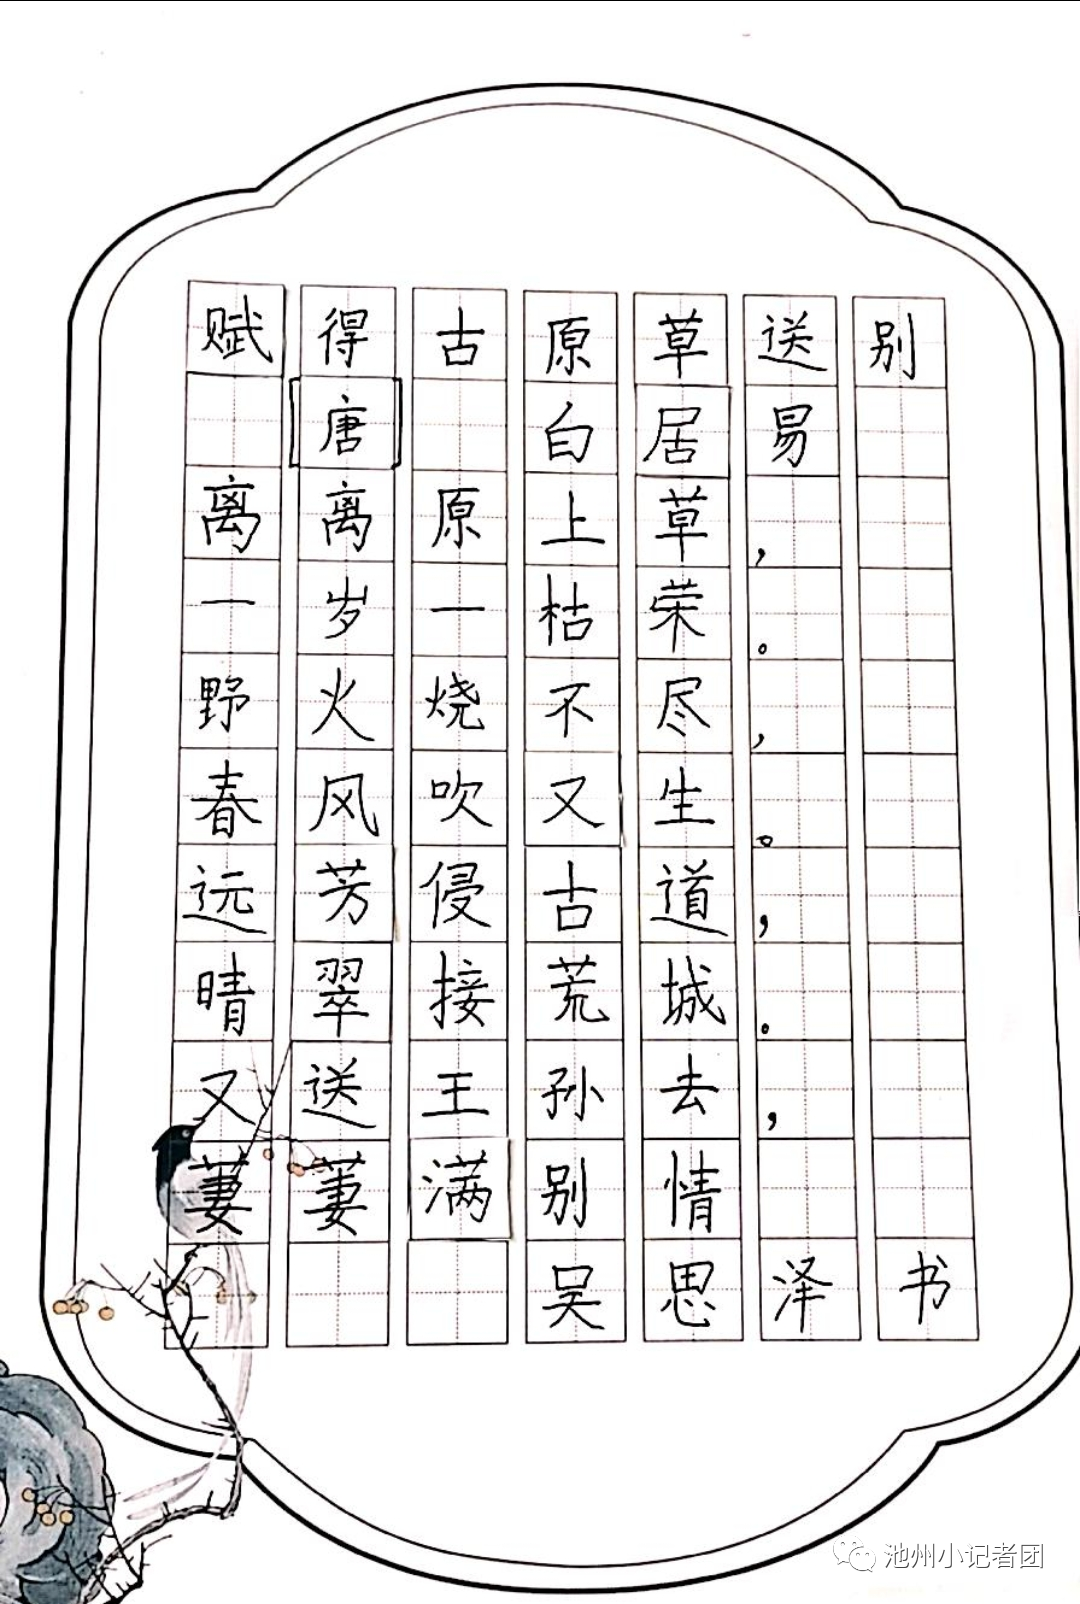 赋得古原草送别
[唐]白居易
离离原上草，
一岁一枯荣。
野火烧不尽，
春风吹又生。
远芳侵古道，
晴翠接荒城。
又送王孙去，
萋萋满别情
吴思泽书
池州小记者团